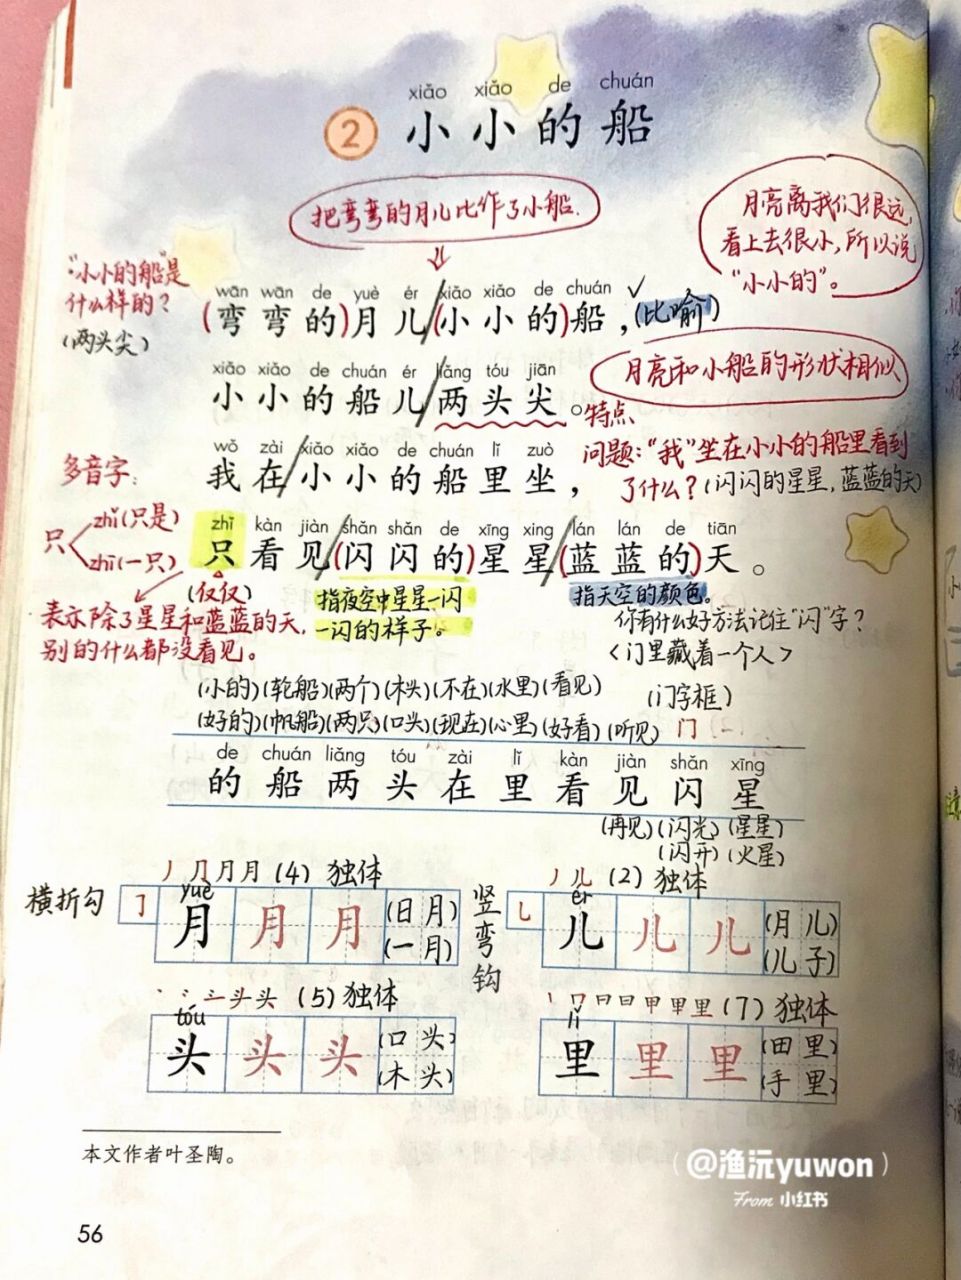 xiǎo xiǎo de chuán
2 小小的船
把弯弯的月儿比作了小船.
月亮离我们很远,
看上去很小,所以说
“小小的”。
“小小的船”是
什么样的?
(两头尖)
wān wān de yuè ér xiǎo xiǎo de chuán
(弯弯的)月儿/(小小的)船,(比喻)
月亮和小船的形状相似
xiǎo xiǎo de chuán ér liǎng tóu jiān
小小的船儿/两头尖。特点
问题:“我”坐在小小的船里看到
了什么?(闪闪的星星,蓝蓝的天)
wǒ zài xiǎo xiǎo de chuán lǐ zuò
我在/小小的船里坐,
多音字:
只
zhǐ(只是)
zhī(一只)
zhǐ kàn jiàn shǎn shǎn de xīng xing lán lán de tiān
只看见/(闪闪的)星星/(蓝蓝的)天。
(仅仅)
表示除了星星和蓝蓝的天,
别的什么都没看见。
指夜空中星星一闪
一闪的样子。
指天空的颜色。
你有什么好方法记住“闪”字?
<门里藏着一个人>
(小的)(轮船)(两个)(木头)(不在)(水里)(看见)
(门字框)
(好的)(帆船)(两只)(口头)(现在)(心里)(好看)(听见) 门
de chuán liǎng tóu zài lǐ kàn jiàn shǎn xīng
的船两头在里看见闪星
(再见)(闪光)(星星)
(闪开)(火星)
丿 ⺆ 月 月 (4) 独体
横折勾
㇆ yuè
月 月 月 (日月)
(一月)
丿 儿 (2) 独体
竖弯钩
乚 ér
儿 儿 儿 (月儿)
(儿子)
丶 ⺀ 头 头 (5) 独体
tóu
头 头 头 (口头)
(木头)
丨 冂 曰 曰 甲 里 里 (7) 独体
lǐ
里 里 里 (田里)
(手里)
本文作者叶圣陶。
56
@渔沅yuwon
From 小红书